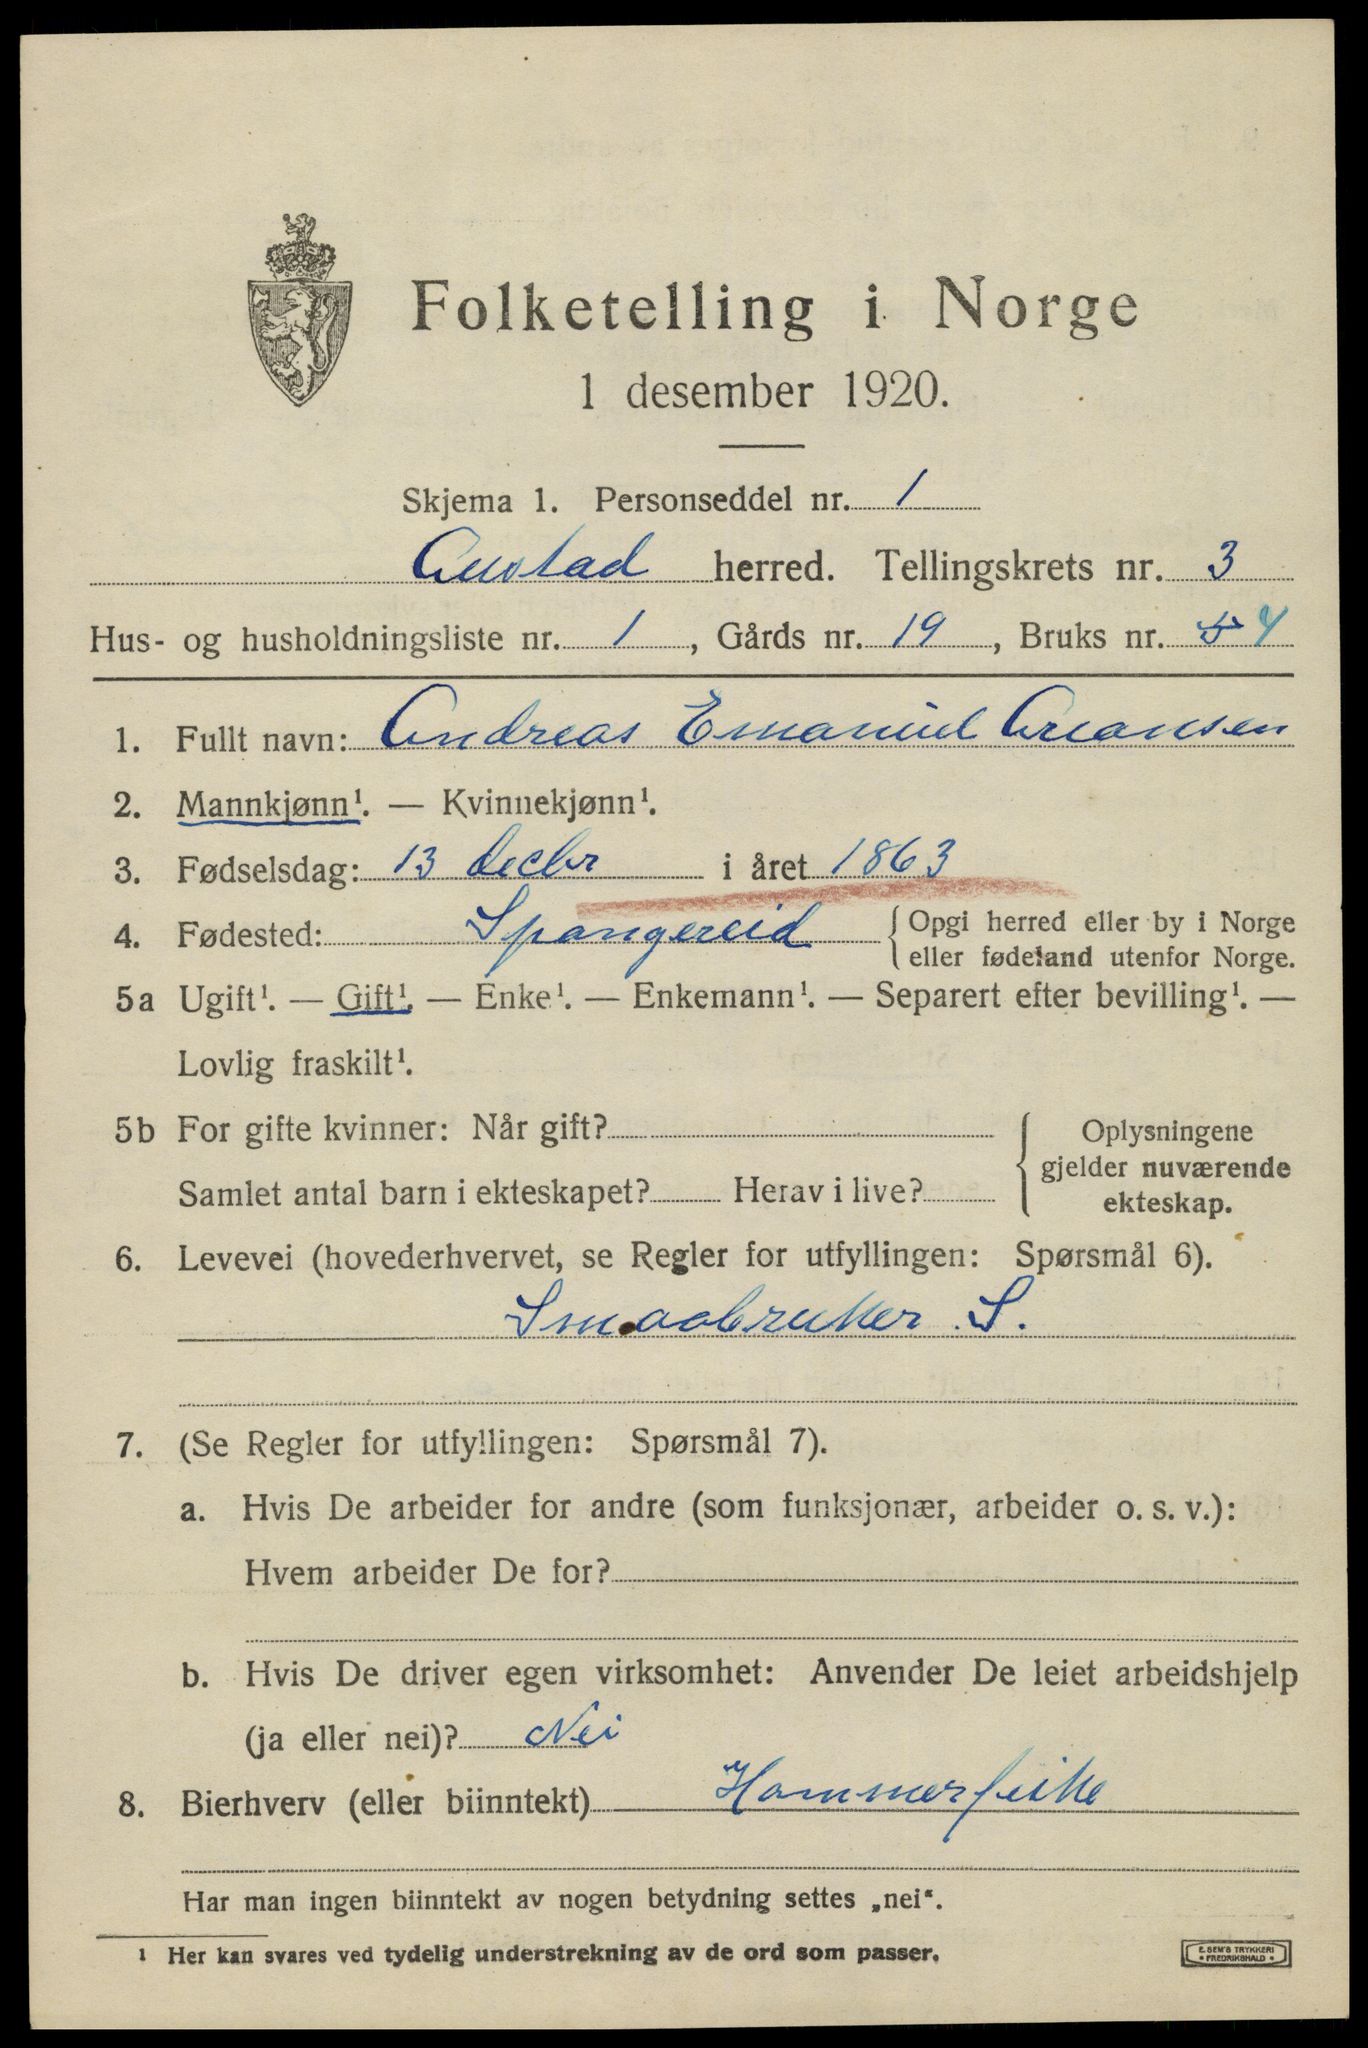 Folketelling i Norge
1 desember 1920.
Skjema 1. Personseddel nr. 1
Austad herred. Tellingskrets nr. 3
Hus- og husholdningsliste nr. 1, Gårds nr. 19, Bruks nr. 5 4
1. Fullt navn: Andreas Emanuel Areansen
2. Mannkjønn¹. — Kvinnekjønn¹.
3. Fødselsdag: 13 decbr i året 1863
4. Fødested: Spangereid { Opgi herred eller by i Norge
eller fødeland utenfor Norge.
5a Ugift¹. — Gift¹. — Enke¹. — Enkemann¹. — Separert efter bevilling¹. —
Lovlig fraskilt¹.
5b For gifte kvinner: Når gift?
Samlet antal barn i ekteskapet? Herav i live?
{ Oplysningene
gjelder nuværende
ekteskap.
6. Levevei (hovederhvervet, se Regler for utfyllingen: Spørsmål 6).
Smaabruker S.
7. (Se Regler for utfyllingen: Spørsmål 7).
a. Hvis De arbeider for andre (som funksjonær, arbeider o. s. v.):
Hvem arbeider De for?
b. Hvis De driver egen virksomhet: Anvender De leiet arbeidshjelp
(ja eller nei)? Nei
8. Bierhverv (eller biinntekt) Hommerfiske
Har man ingen biinntekt av nogen betydning settes „nei“.
¹ Her kan svares ved tydelig understrekning av de ord som passer.
E. SEM'S TRYKKERI
• FREDRIKSHALD •